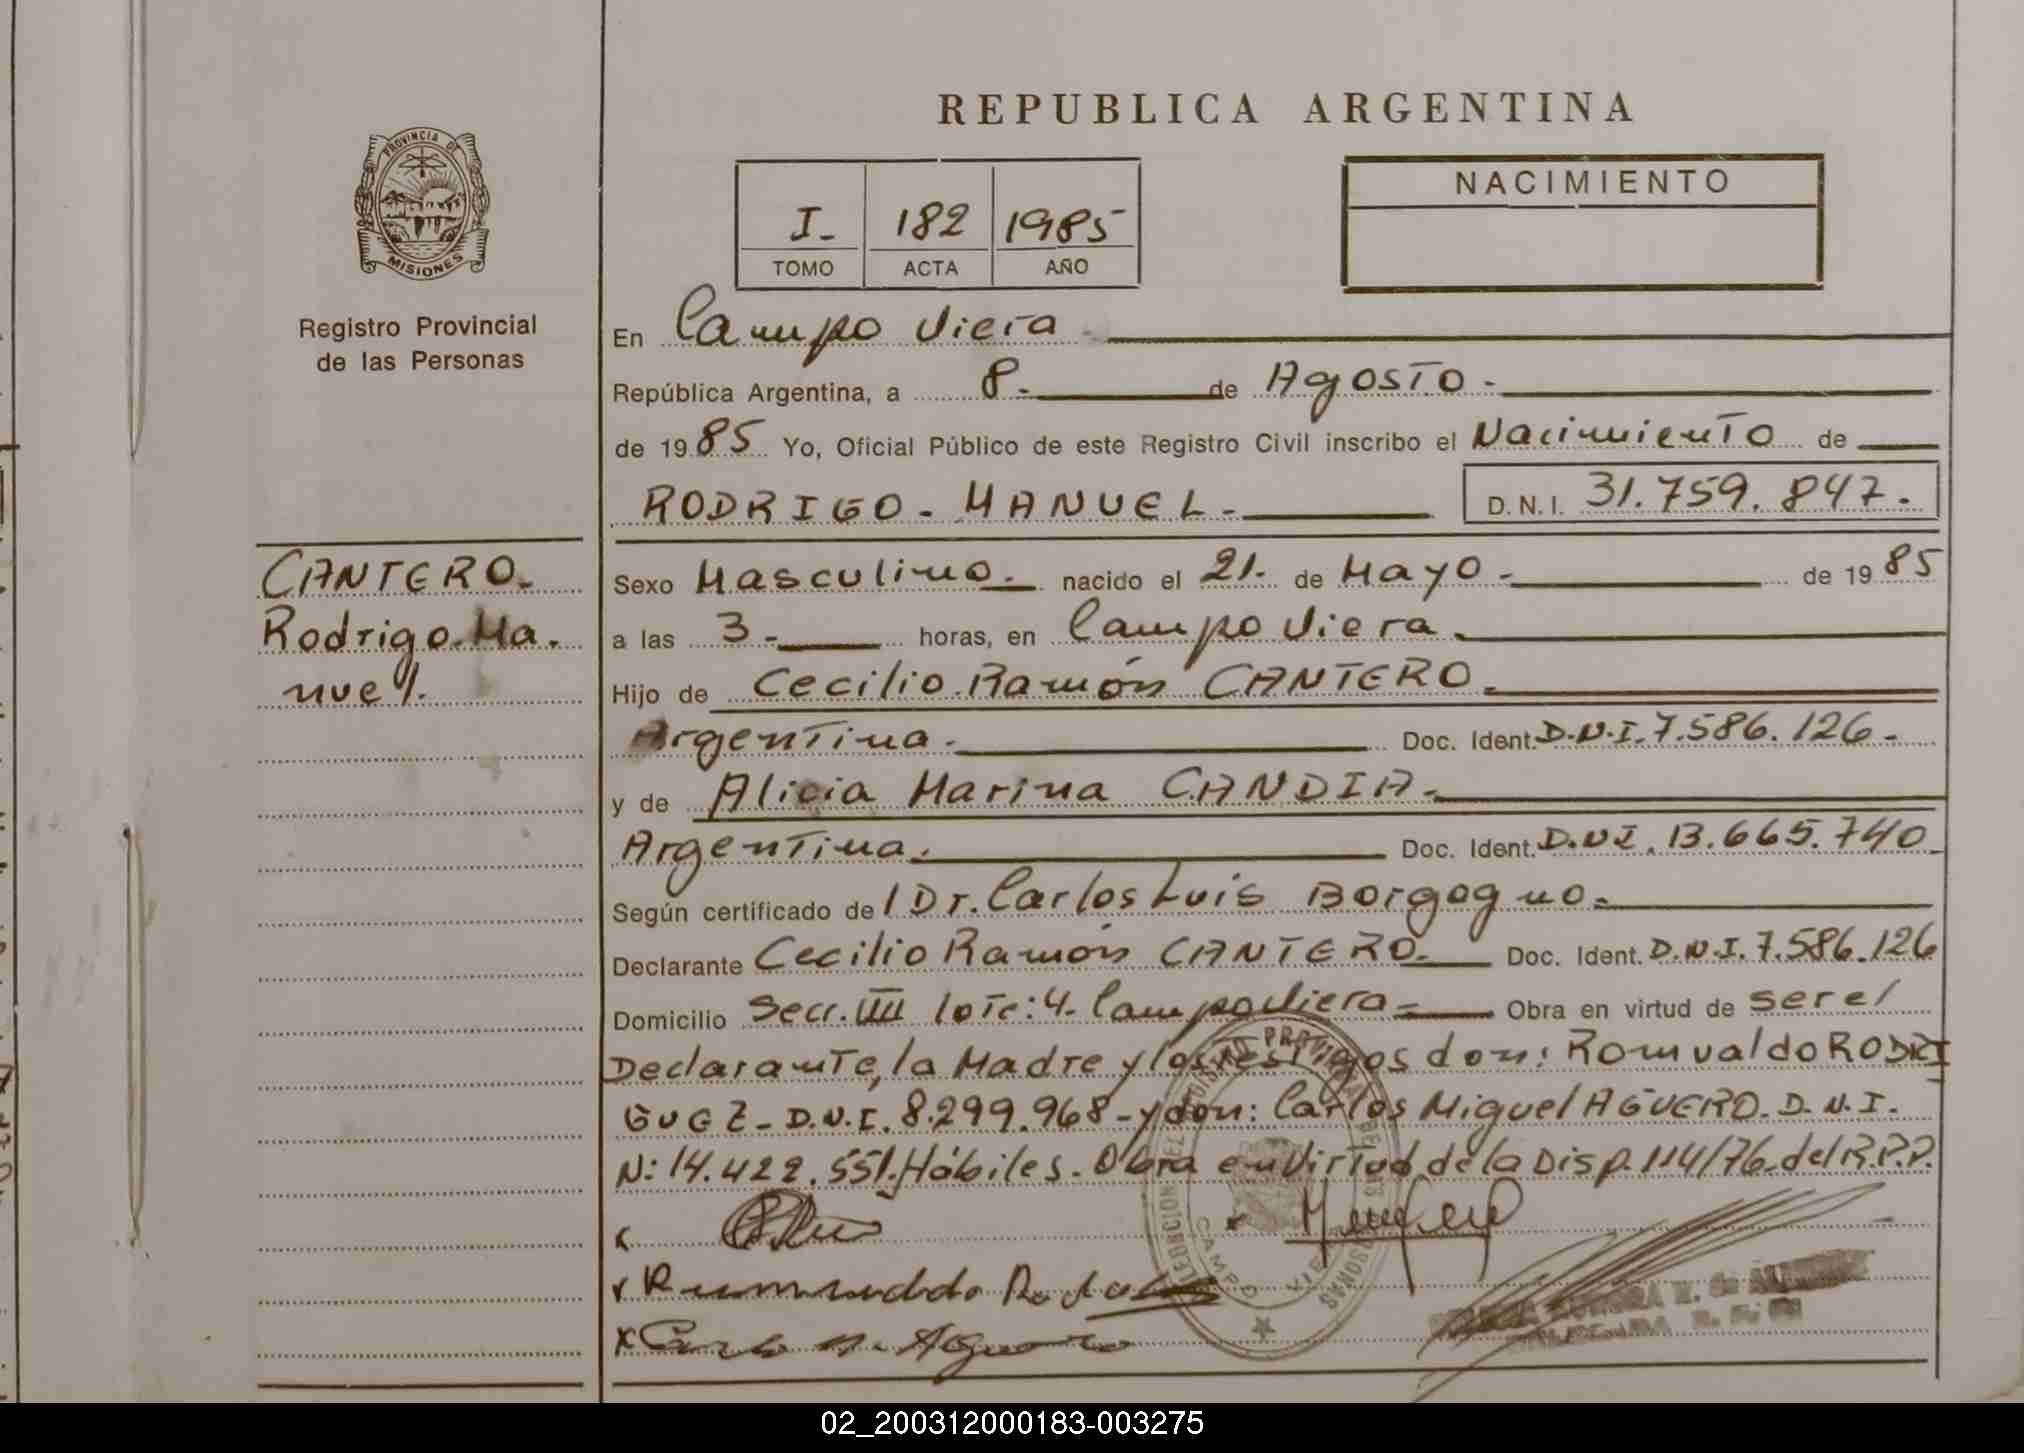 REPUBLICA ARGENTINA
PROVINCIA DE
MISIONES
Registro Provincial
de las Personas
I. 182 1985
TOMO ACTA AÑO
NACIMIENTO
En Campo Viera
República Argentina, a 8. de Agosto.
de 1985 Yo, Oficial Público de este Registro Civil inscribo el Nacimiento de
RODRIGO - MANUEL - D.N.I. 31.759.847.
CANTERO.
Rodrigo Ma.
nuel.
Sexo Masculino. nacido el 21. de Mayo. de 1985
a las 3. horas, en Campo Viera.
Hijo de Cecilio Ramón CANTERO.
Argentina. Doc. Ident. D.N.I. 7.586.126.
y de Alicia Marina CANDIA.
Argentina. Doc. Ident. D.N.I. 13.665.740
Según certificado del Dr. Carlos Luis Borgogno.
Declarante Cecilio Ramón CANTERO. Doc. Ident. D.N.I. 7.586.126
Domicilio Secc. VIII lote: 4. Campo Viera Obra en virtud de ser el
Declarante, la Madre y los testigos don: Romualdo RODRI
GUEZ - D.N.I. 8.299.968 - y don: Carlos Miguel AGUERO. D.N.I.
N: 14.422.551. Hábiles. Obra en Virtud de la Disp. 114/76 del R.P.P.
CAMPO VIERA
02_200312000183-003275